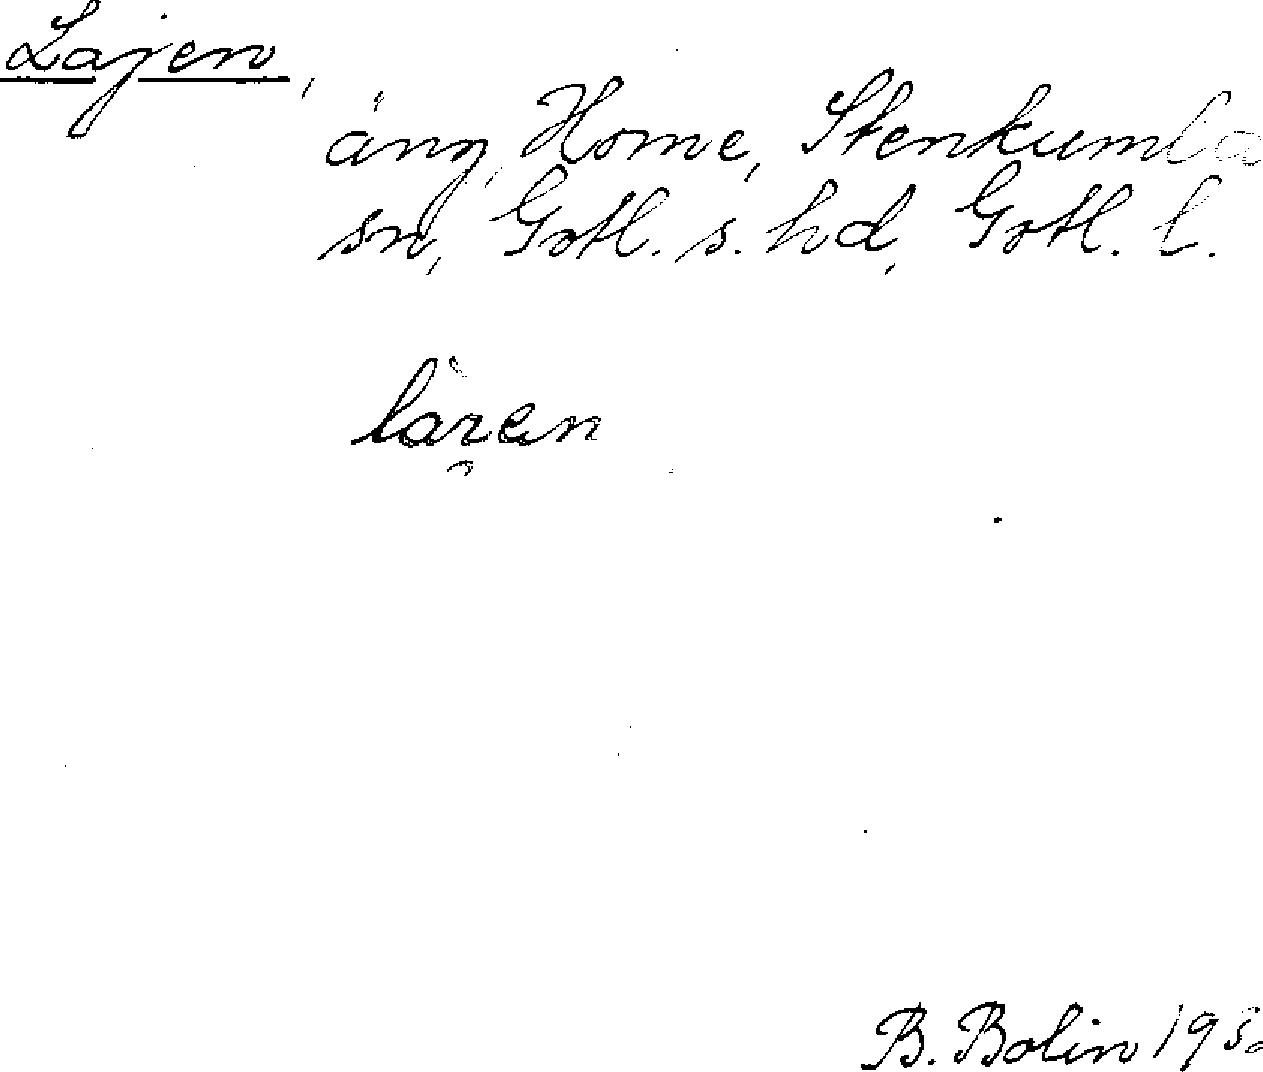 Lajen,
äng, Home, Stenkumla
sn, Gotl. s. hd, Gotl. l.
B. Bolin